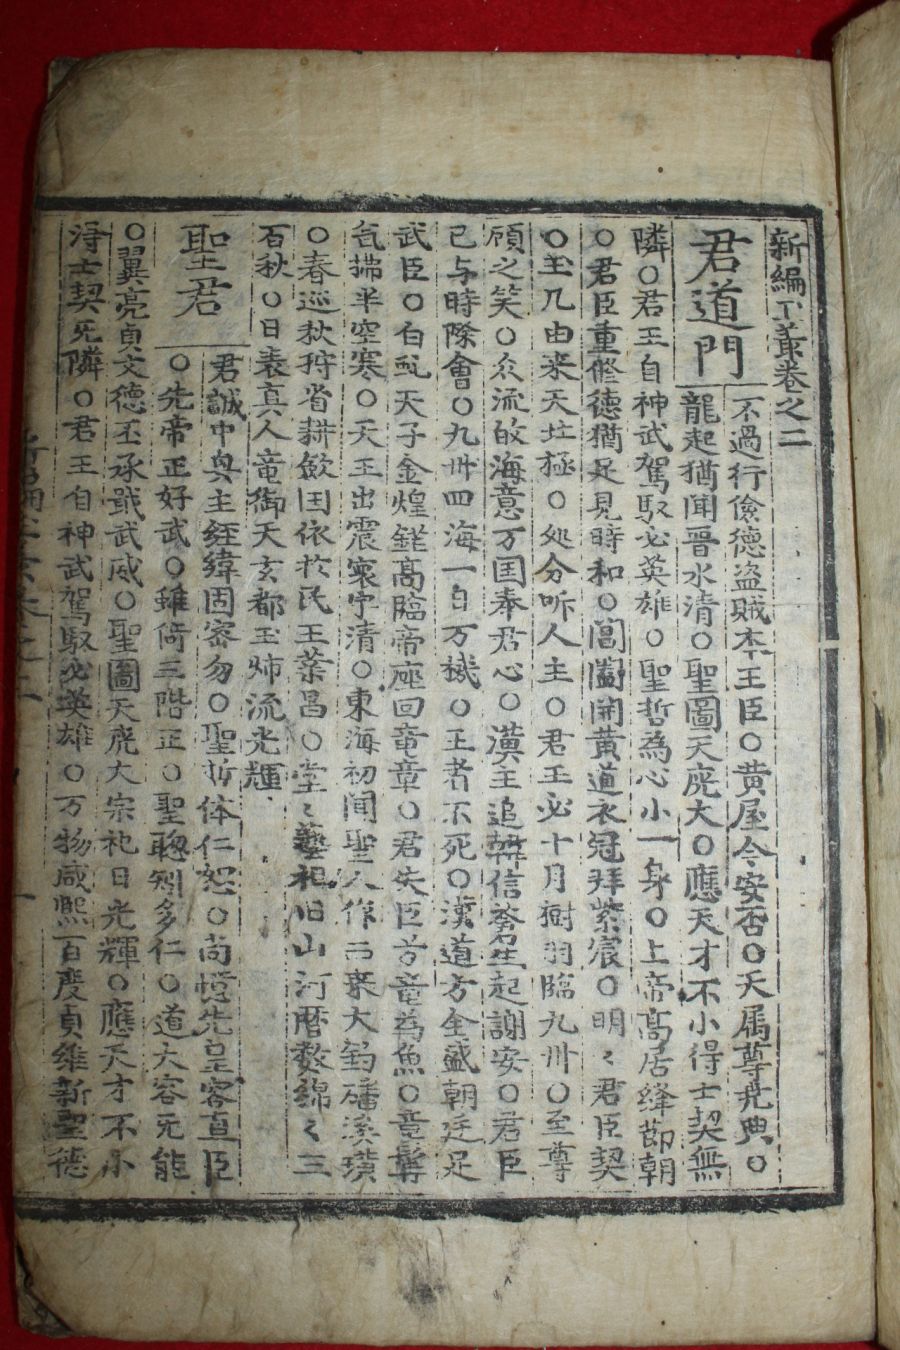 新編工叢卷之二
君道門
不過行儉德盗賊本王臣○黄屋今安否○天属尊尭典○
龍起猶聞晋水清○聖圖天庑大○應天才不小得士契無
隣○君王自神武駕馭必英雄○聖哲為心小一身○上帝高居絳節朝
○君臣重脩德猶足見時和○閶闔開黄道衣冠拜紫宸○明〻君臣契
○玉几由来天北極○処分听人主○君王必十月樹羽臨九州○至尊
顔之笑○众流㱕海意万囯奉君心○漢王追韓信蒼生起謝安○君臣
已与時際會○九卅四海一日万機○王者不死○漢道方全盛朝廷足
武臣○白 天子金煌 高臨帝座回竜章○君失臣兮竜為魚○竜髯
氣拂半空寒○天王出震寰宇清○東海初聞聖人作 来大 磻溪璜
○春巡秋狩省耕歛囯依於民王葉昌○堂〻藝祖旧山河暦数綿〻三
百秋○日表真人竜御天玄都玉 流光輝
聖君
君誠中興主經緯固密勿○聖哲体仁恕○尚憶先皇容直臣
○先帝正好武○雖倚三階正○聖聡矧多仁○道大容无能
○翼亮貞文德丕承戢武威○聖圖天庑大宗祀日光輝○應天才不小
淂士契无隣○君王自神武駕馭必英雄○万物咸熙百度貞維新聖德